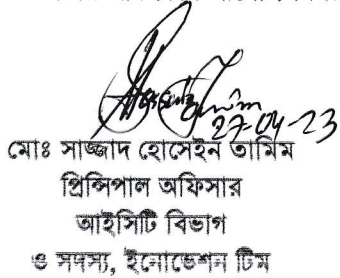 27-04-23
মোঃ সাজ্জাদ হোসেইন তামিম
প্রিন্সিপাল অফিসার
আইসিটি বিভাগ
ও সদস্য, ইনোভেশন টিম